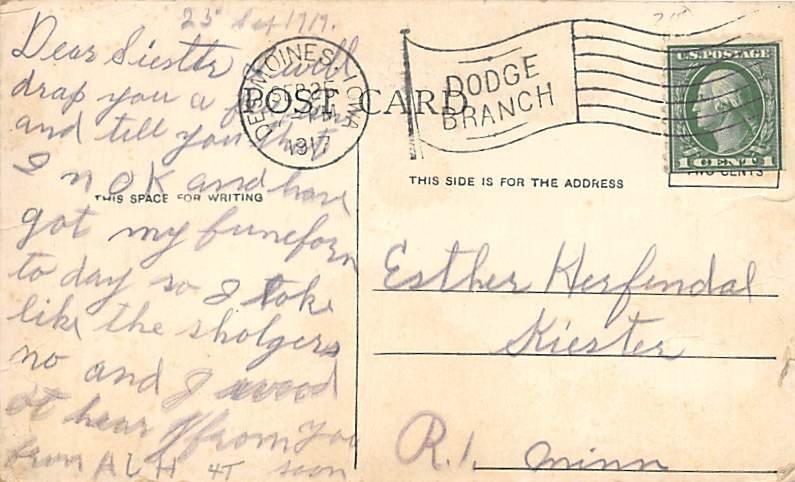 23 Sep 1917.
Dear Siester I will
drap you a few
and tell you that
I n OK and have
got my funeforn
to day so I loke
like the sholgers
no and I wood
ot hear from you
from ALH soon
POST CARD
THIS SPACE FOR WRITING
DES MOINES, IOWA
SEP
1917
DODGE
BRANCH
U.S. POSTAGE
1 CENT 1
TWO CENTS
THIS SIDE IS FOR THE ADDRESS
Esther Herfindal
Kiester
R.1. Minn